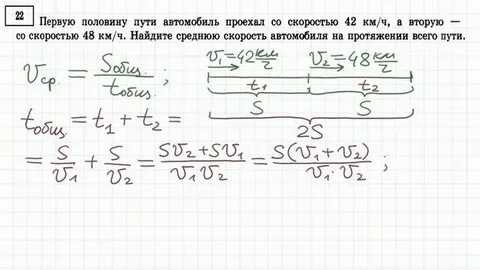 22
Первую половину пути автомобиль проехал со скоростью 42 км/ч, а вторую —
со скоростью 48 км/ч. Найдите среднюю скорость автомобиля на протяжении всего пути.
v₁=42 км/ч v₂=48 км/ч
vср. = Sобщ./tобщ. ;
t₁ t₂
S S
2S
tобщ. = t₁ + t₂ =
= S/v₁ + S/v₂ = (Sv₂+Sv₁)/(v₁v₂) = S(v₁+v₂)/(v₁·v₂) ;